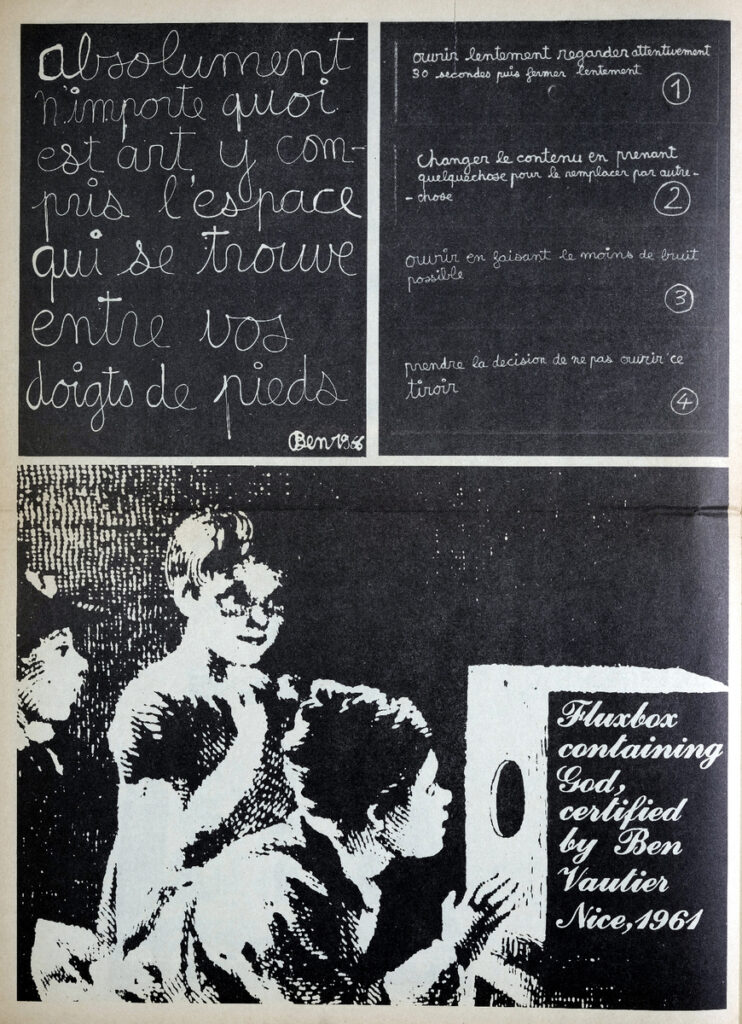 absolument
n'importe quoi
est art y com-
pris l'espace
qui se trouve
entre vos
doigts de pieds
Ben 1966
ouvrir lentement regarder attentivement
30 secondes puis fermer lentement
1
changer le contenu en prenant
quelquechose pour le remplacer par autre-
-chose
2
ouvrir en faisant le moins de bruit
possible
3
prendre la decision de ne pas ouvrir ce
tiroir
4
Fluxbox
containing
God,
certified
by Ben
Vautier
Nice, 1961